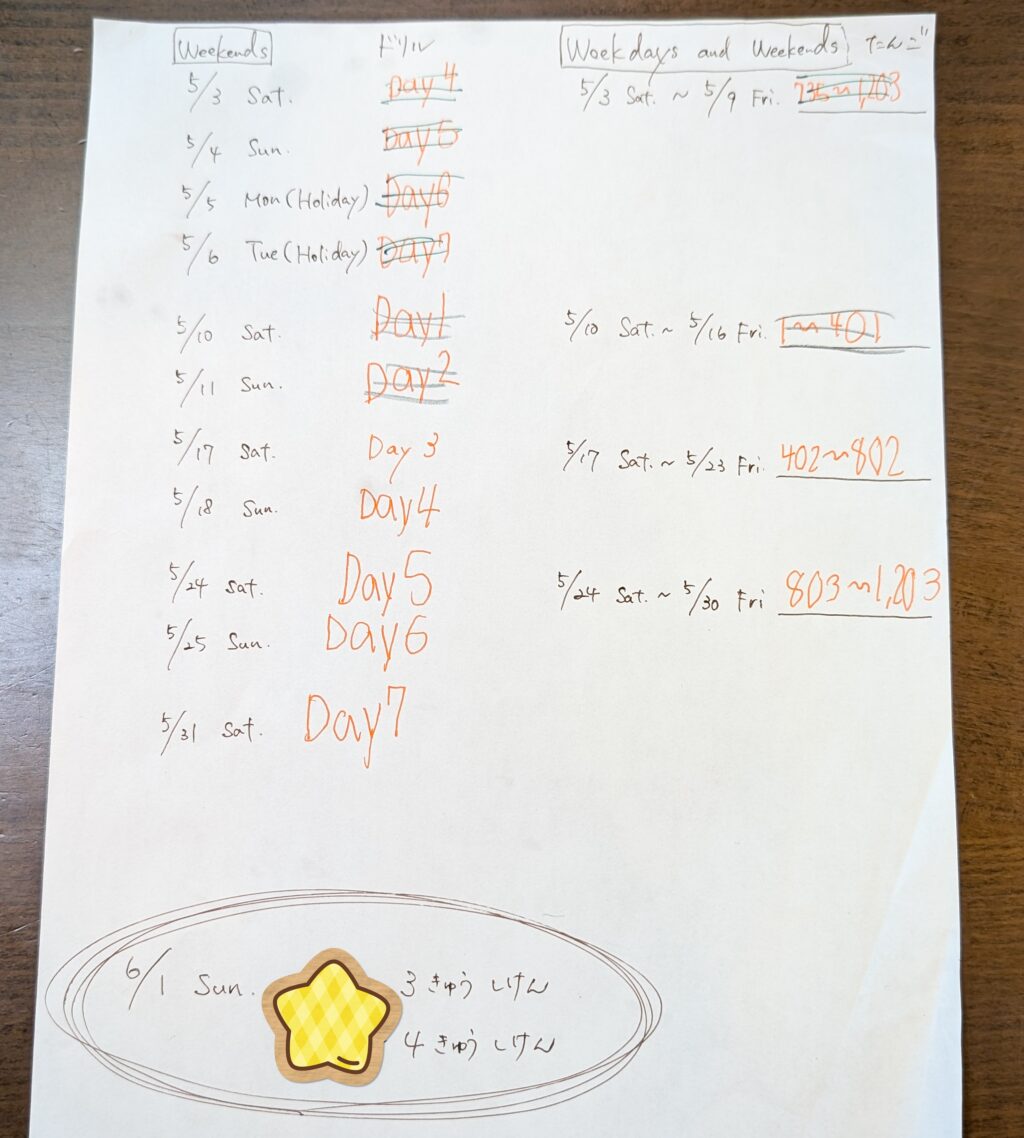 Weekends ドリル Weekdays and Weekends たんご
5/3 Sat. Day 4 5/3 Sat. ~ 5/9 Fri. 735~1,203
5/4 Sun. Day 5
5/5 Mon (Holiday) Day 6
5/6 Tue (Holiday) Day 7
5/10 Sat. Day 1 5/10 Sat. ~ 5/16 Fri. 1~401
5/11 Sun. Day 2
5/17 Sat. Day 3 5/17 Sat. ~ 5/23 Fri. 402~802
5/18 Sun. Day 4
5/24 Sat. Day 5 5/24 Sat. ~ 5/30 Fri 803~1,203
5/25 Sun. Day 6
5/31 Sat. Day 7
6/1 Sun. 3きゅうしけん
4きゅうしけん